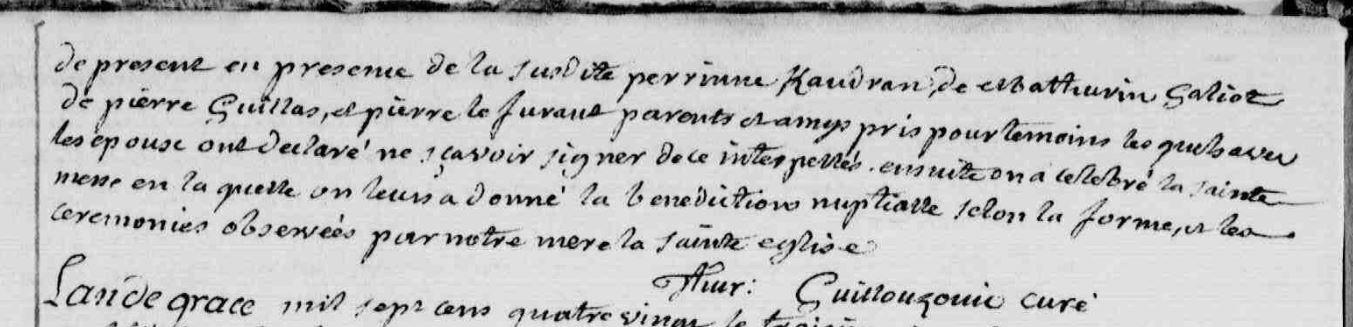 de present en presence de la susdite perrinne Kaudran, de Mathurin Galiot
de pierre Guillas, et pierre le Jurant parents et amys pris pour temoins les quels avec
les epouse ont declaré ne sçavoir signer de ce interpellés. ensuite on a celebré la sainte
messe en la quelle on leurs a donné la benediction nuptialle selon la forme, et les
ceremonies observées par notre mere la sainte eglise
Guillouzouic curé
L'an de grace mil sept cens quatre vingt le